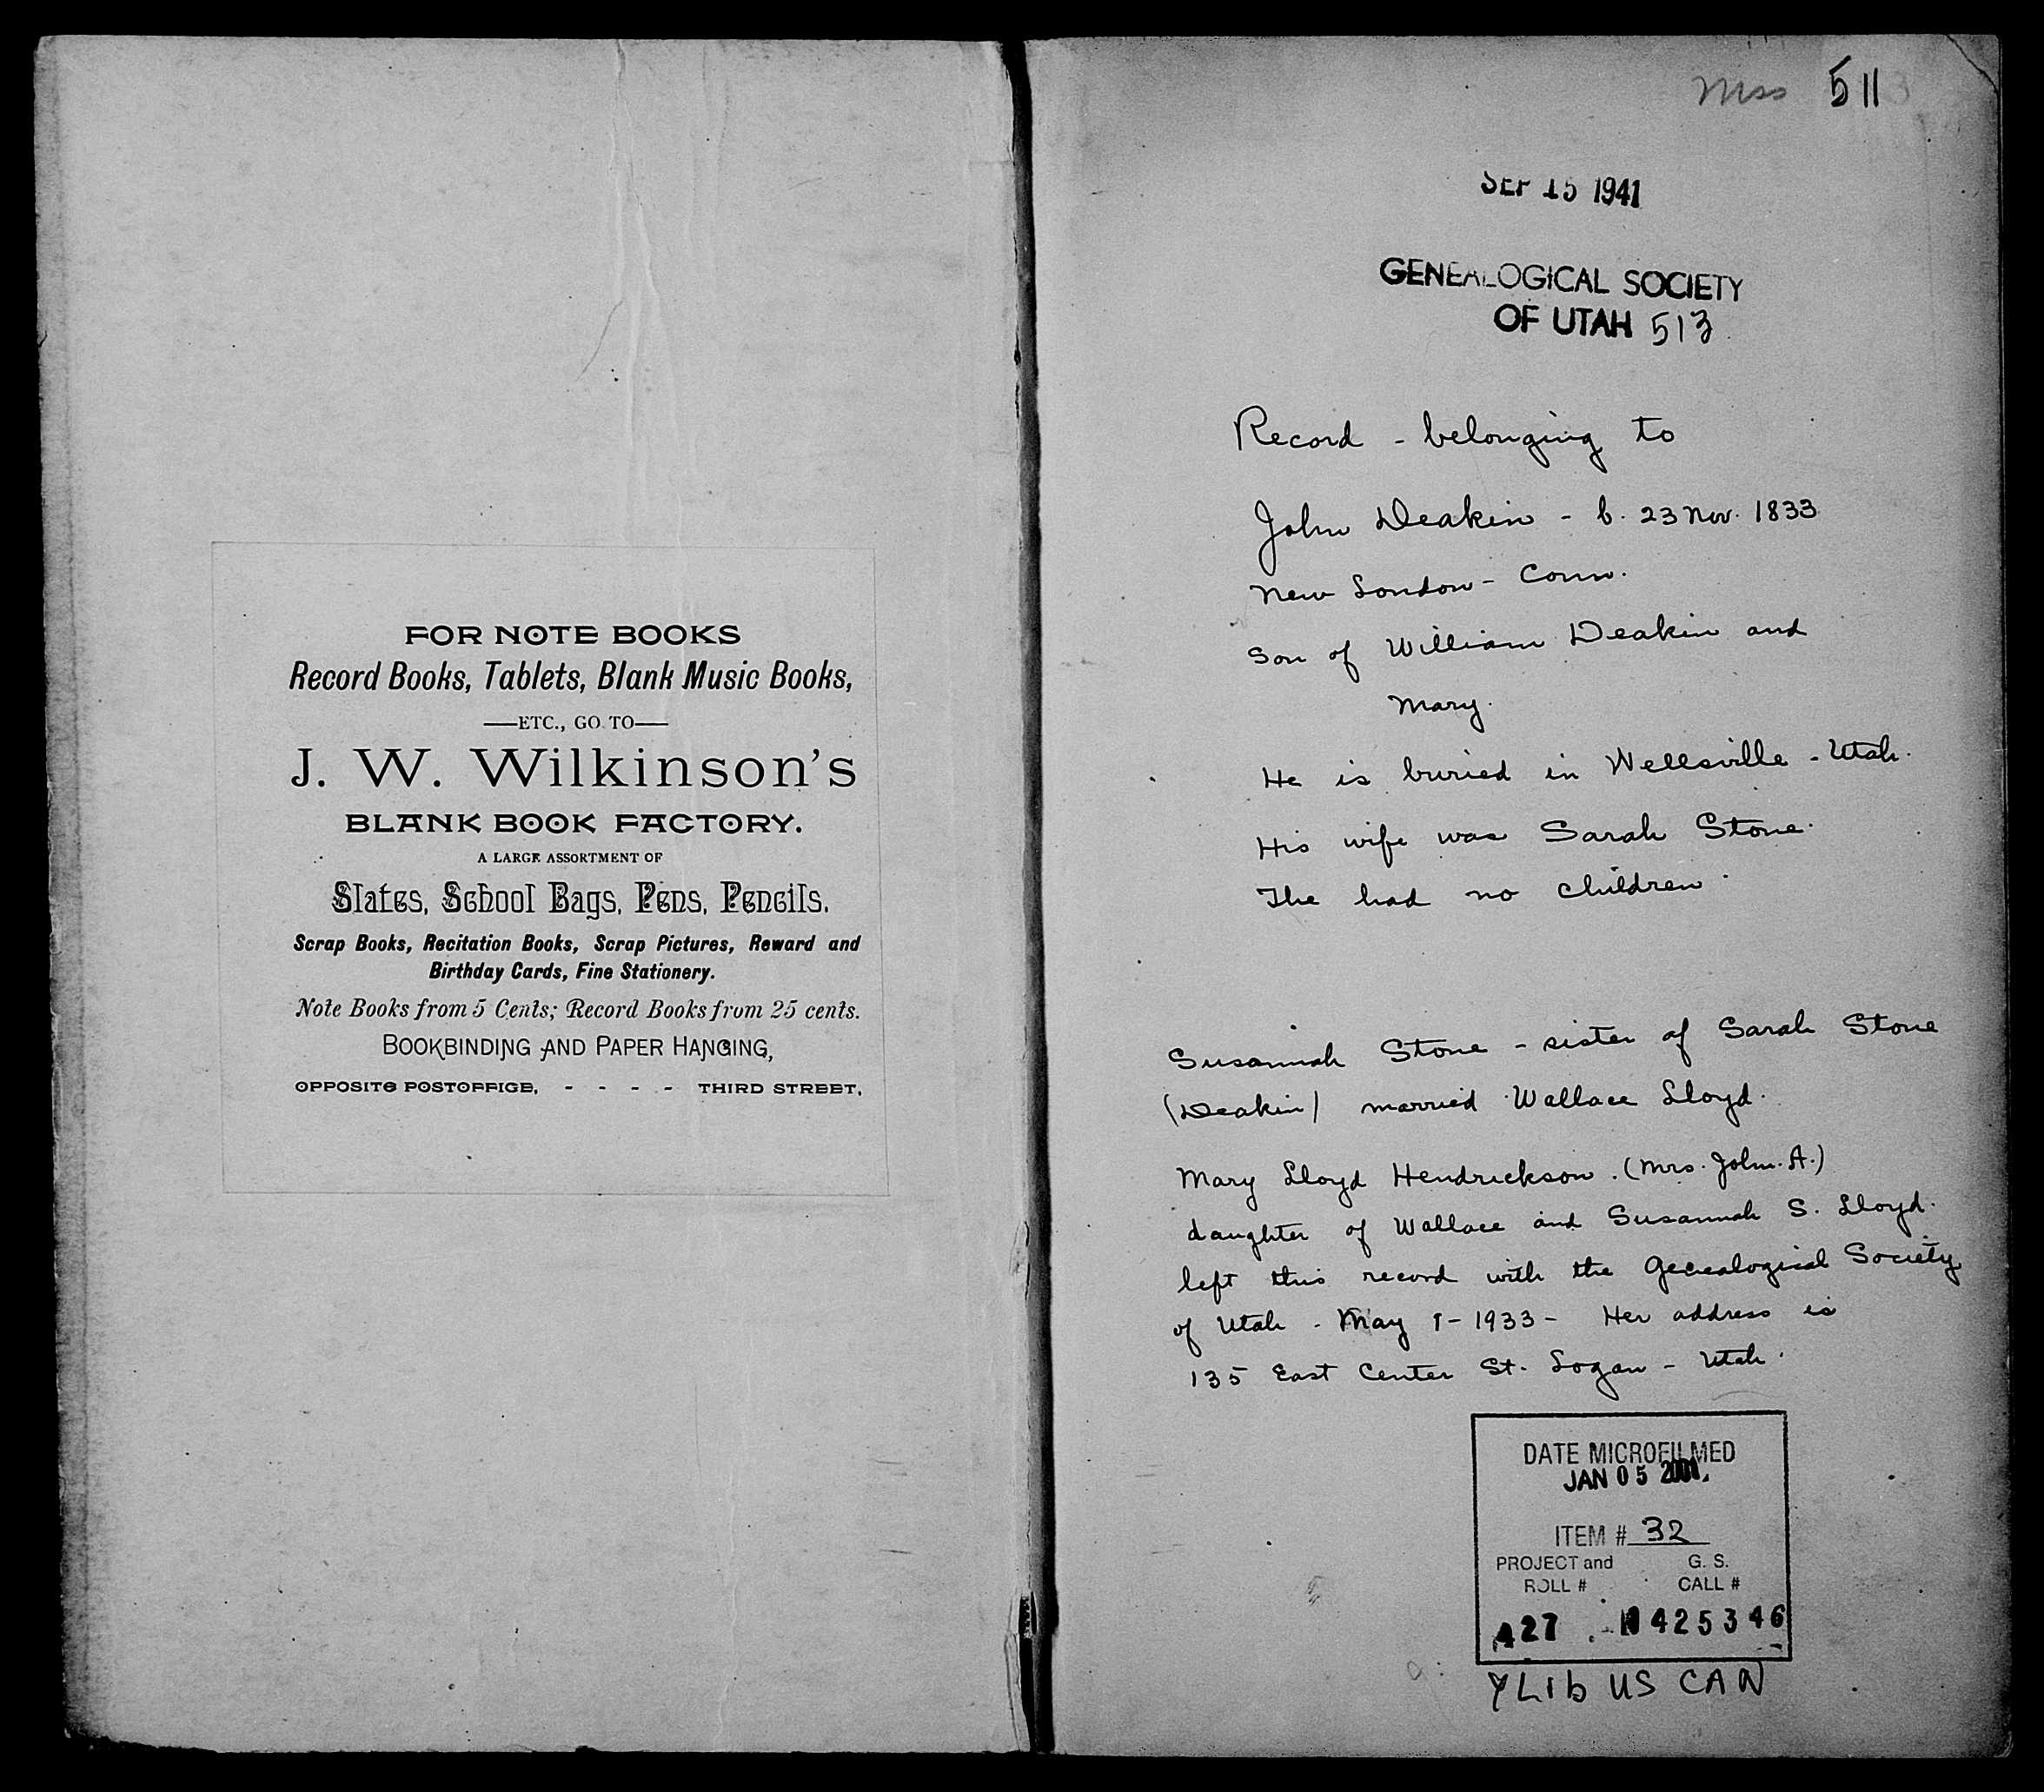 FOR NOTE BOOKS
Record Books, Tablets, Blank Music Books,
—ETC., GO TO—
J. W. Wilkinson's
BLANK BOOK FACTORY.
A LARGE ASSORTMENT OF
Slates, School Bags, Pens, Pencils.
Scrap Books, Recitation Books, Scrap Pictures, Reward and
Birthday Cards, Fine Stationery.
Note Books from 5 Cents; Record Books from 25 cents.
BOOKBINDING AND PAPER HANGING,
OPPOSITE POSTOFFICE, - - - - THIRD STREET.
Mss 511
SEP 15 1941
GENEALOGICAL SOCIETY
OF UTAH 513
Record - belonging to
John Deakin - b. 23 Nov. 1833
New London - Conn.
Son of William Deakin and
Mary.
He is buried in Wellsville - Utah.
His wife was Sarah Stone.
The had no children.
Susannah Stone - sister of Sarah Stone
(Deakin) married Wallace Lloyd.
Mary Lloyd Hendrickson. (Mrs. John. A.)
daughter of Wallace and Susannah S. Lloyd.
left this record with the Genealogical Society
of Utah - May 1-1933 - Her address is
135 East Center St. Logan - Utah.
DATE MICROFILMED
JAN 05 2001
ITEM # 32
PROJECT and G. S.
ROLL # CALL #
427 425346
YLIb US CAN